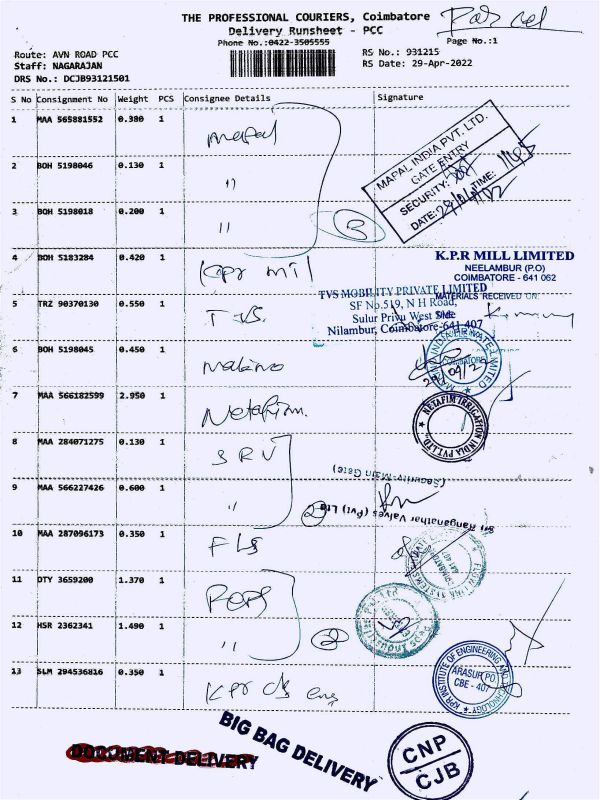 THE PROFESSIONAL COURIERS, Coimbatore
Parcel
Delivery Runsheet - PCC
Phone No.:0422-3505555
Page No.:1
Route: AVN ROAD PCC
RS No.: 931215
Staff: NAGARAJAN
RS Date: 29-Apr-2022
DRS No.: DCJB93121501
S No Consignment No Weight PCS Consignee Details Signature
1 MAA 565881552 0.380 1 mapal
MAPAL INDIA PVT. LTD.
GATE ENTRY
SECURITY:
DATE: TIME:
2 BOH 5198046 0.130 1 "
3 BOH 5198018 0.200 1 "
3
4 BOH 5183284 0.420 1 Kpr mil
K.P.R MILL LIMITED
NEELAMBUR (P.O)
COIMBATORE - 641 062
MATERIALS RECEIVED ON:
TVS MOBILITY PRIVATE LIMITED
SF No.519, N H Road,
Sulur Privu West Side
Nilambur, Coimbatore-641 407
5 TRZ 90370130 0.550 1 TVS.
6 BOH 5198045 0.450 1 Makino
7 MAA 566182599 2.950 1 Netafim.
NETAFIM IRRIGATION INDIA PVT.LTD.,
8 MAA 284071275 0.130 1 SRV
(Security-Main Gate)
9 MAA 566227426 0.600 1 "
2
Sri Ranganathar Valves (Pvt) Ltd
10 MAA 287096173 0.350 1 FLS
11 DTY 3659200 1.370 1
12 HSR 2362341 1.490 1 "
2
13 SLM 294536816 0.350 1 Kpr clg eng
KPR INSTITUTE OF ENGINEERING AND TECHNOLOGY
ARASUR PO
CBE - 407
BIG BAG DELIVERY
DOCUMENT DELIVERY
CNP
CJB